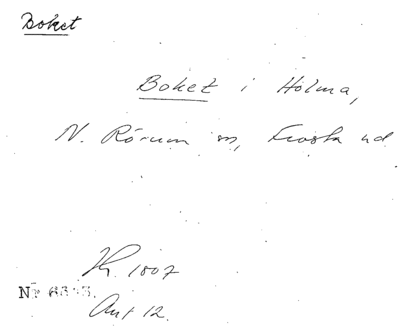 Boket
Boket i Holma,
N. Rörum sn, Frosta hd
1807
No 63
Akt 12.